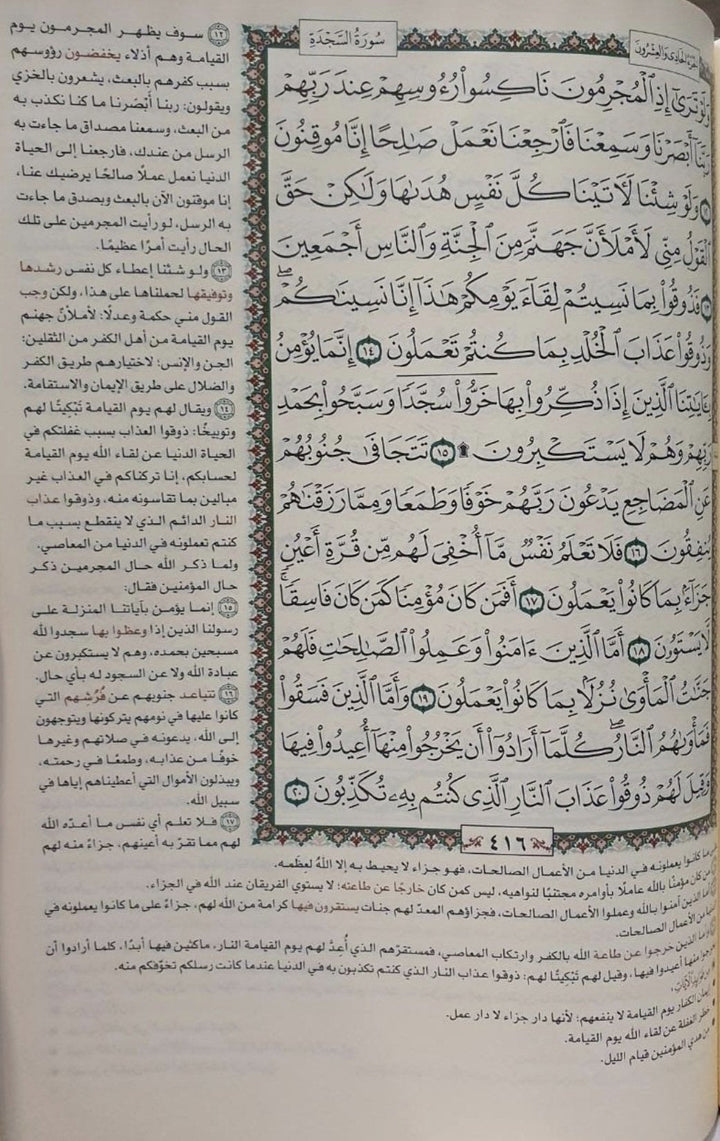 سُورَةُ السَّجْدَةِ
وَلَوْ تَرَىٰٓ إِذِ ٱلْمُجْرِمُونَ نَاكِسُوا۟ رُءُوسِهِمْ عِندَ رَبِّهِمْ
رَبَّنَآ أَبْصَرْنَا وَسَمِعْنَا فَٱرْجِعْنَا نَعْمَلْ صَـٰلِحًا إِنَّا مُوقِنُونَ
١٢ وَلَوْ شِئْنَا لَـَٔاتَيْنَا كُلَّ نَفْسٍ هُدَىٰهَا وَلَـٰكِنْ حَقَّ
ٱلْقَوْلُ مِنِّى لَأَمْلَأَنَّ جَهَنَّمَ مِنَ ٱلْجِنَّةِ وَٱلنَّاسِ أَجْمَعِينَ
١٣ فَذُوقُوا۟ بِمَا نَسِيتُمْ لِقَآءَ يَوْمِكُمْ هَـٰذَآ إِنَّا نَسِينَـٰكُمْ ۖ
وَذُوقُوا۟ عَذَابَ ٱلْخُلْدِ بِمَا كُنتُمْ تَعْمَلُونَ ١٤ إِنَّمَا يُؤْمِنُ
بِـَٔايَـٰتِنَا ٱلَّذِينَ إِذَا ذُكِّرُوا۟ بِهَا خَرُّوا۟ سُجَّدًا وَسَبَّحُوا۟ بِحَمْدِ
رَبِّهِمْ وَهُمْ لَا يَسْتَكْبِرُونَ ۩ ١٥ تَتَجَافَىٰ جُنُوبُهُمْ
عَنِ ٱلْمَضَاجِعِ يَدْعُونَ رَبَّهُمْ خَوْفًا وَطَمَعًا وَمِمَّا رَزَقْنَـٰهُمْ
يُنفِقُونَ ١٦ فَلَا تَعْلَمُ نَفْسٌ مَّآ أُخْفِىَ لَهُم مِّن قُرَّةِ أَعْيُنٍ
جَزَآءًۢ بِمَا كَانُوا۟ يَعْمَلُونَ ١٧ أَفَمَن كَانَ مُؤْمِنًا كَمَن كَانَ فَاسِقًا ۚ
لَّا يَسْتَوُۥنَ ١٨ أَمَّا ٱلَّذِينَ ءَامَنُوا۟ وَعَمِلُوا۟ ٱلصَّـٰلِحَـٰتِ فَلَهُمْ
جَنَّـٰتُ ٱلْمَأْوَىٰ نُزُلًۢا بِمَا كَانُوا۟ يَعْمَلُونَ ١٩ وَأَمَّا ٱلَّذِينَ فَسَقُوا۟
فَمَأْوَىٰهُمُ ٱلنَّارُ ۖ كُلَّمَآ أَرَادُوٓا۟ أَن يَخْرُجُوا۟ مِنْهَآ أُعِيدُوا۟ فِيهَا
وَقِيلَ لَهُمْ ذُوقُوا۟ عَذَابَ ٱلنَّارِ ٱلَّذِى كُنتُم بِهِۦ تُكَذِّبُونَ ٢٠
٤١٦
١٢ سوف يظهر المجرمون يوم
القيامة وهم أذلاء يخفضون رؤوسهم
بسبب كفرهم بالبعث، يشعرون بالخزي
ويقولون: ربنا أبْصَرنا ما كنا نكذب به
من البعث، وسمعنا مصداق ما جاءت به
الرسل من عندك، فارجعنا إلى الحياة
الدنيا نعمل عملًا صالحًا يرضيك عنا،
إنا موقنون الآن بالبعث وبصدق ما جاءت
به الرسل، لو رأيت المجرمين على تلك
الحال رأيت أمرًا عظيمًا.
١٣ ولو شئنا إعطاء كل نفس رشدها
وتوفيقها لحملناها على هذا، ولكن وجب
القول مني حكمة وعدلًا: لأملأنّ جهنم
يوم القيامة من أهل الكفر من الثقلين:
الجن والإنس؛ لاختيارهم طريق الكفر
والضلال على طريق الإيمان والاستقامة.
١٤ ويقال لهم يوم القيامة تَبْكِيتًا لهم
وتوبيخًا: ذوقوا العذاب بسبب غفلتكم في
الحياة الدنيا عن لقاء الله يوم القيامة
لحسابكم، إنا تركناكم في العذاب غير
مبالين بما تقاسونه منه، وذوقوا عذاب
النار الدائم الذي لا ينقطع بسبب ما
كنتم تعملونه في الدنيا من المعاصي.
ولما ذكر الله حال المجرمين ذكر
حال المؤمنين فقال:
١٥ إنما يؤمن بآياتنا المنزلة على
رسولنا الذين إذا وعظوا بها سجدوا لله
مسبحين بحمده، وهم لا يستكبرون عن
عبادة الله ولا عن السجود له بأي حال.
١٦ تتباعد جنوبهم عن فُرُشهم التي
كانوا عليها في نومهم يتركونها ويتوجهون
إلى الله، يدعونه في صلاتهم وغيرها
خوفًا من عذابه، وطمعًا في رحمته،
ويبذلون الأموال التي أعطيناهم إياها في
سبيل الله.
١٧ فلا تعلم أي نفس ما أعدّه الله
لهم مما تقرّ به أعينهم، جزاءً منه لهم
ما كانوا يعملونه في الدنيا من الأعمال الصالحات، فهو جزاء لا يحيط به إلا اللهُ لعِظَمه.
من كان مؤمنًا بالله عاملًا بأوامره مجتنبًا لنواهيه، ليس كمن كان خارجًا عن طاعته؛ لا يستوي الفريقان عند الله في الجزاء.
أما الذين آمنوا بالله وعملوا الأعمال الصالحات، فجزاؤهم المعدّ لهم جنات يستقرون فيها كرامة من الله لهم، جزاءً على ما كانوا يعملونه في
من الأعمال الصالحات.
وأما الذين خرجوا عن طاعة الله بالكفر وارتكاب المعاصي، فمستقرّهم الذي أُعِدَّ لهم يوم القيامة النار، ماكثين فيها أبدًا، كلما أرادوا أن
يخرجوا منها أعيدوا فيها، وقيل لهم تَبْكِيتًا لهم: ذوقوا عذاب النار الذي كنتم تكذبون به في الدنيا عندما كانت رسلكم تخوّفكم منه.
إيمان الكفار يوم القيامة لا ينفعهم؛ لأنها دار جزاء لا دار عمل.
خطر الغفلة عن لقاء الله يوم القيامة.
من هدي المؤمنين قيام الليل.